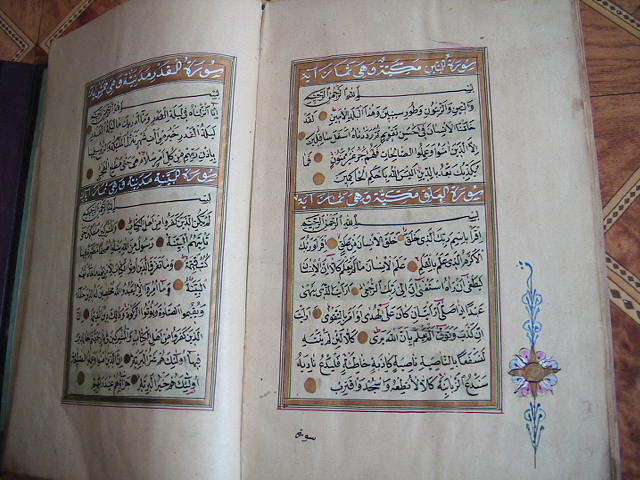 سورة التين مكية وهي ثمان آية
بسم الله الرحمن الرحيم
والتين والزيتون وطور سينين وهذا البلد الأمين لقد
خلقنا الانسان في احسن تقويم ثم رددناه اسفل سافلين
الا الذين امنوا وعملوا الصالحات فلهم اجر غير ممنون فما
يكذبك بعد بالدين اليس الله باحكم الحاكمين
سورة العلق مكية وهي ثمان آية
بسم الله الرحمن الرحيم
اقرأ باسم ربك الذي خلق خلق الانسان من علق اقرأ وربك
الاكرم الذي علم بالقلم علم الانسان ما لم يعلم كلا ان الانسان
ليطغى ان رآه استغنى ان الى ربك الرجعى ارأيت الذي ينهى
عبدا اذا صلى ارأيت ان كان على الهدى او امر بالتقوى ارأيت
ان كذب وتولى الم يعلم بان الله يرى كلا لئن لم ينته
لنسفعا بالناصية ناصية كاذبة خاطئة فليدع ناديه
سندع الزبانية كلا لا تطعه واسجد واقترب
سورة
سورة القدر مدنية وهي خمس آية
بسم الله الرحمن الرحيم
انا انزلناه في ليلة القدر وما ادراك ما ليلة القدر
ليلة القدر خير من الف شهر تنزل الملائكة والروح فيها
باذن ربهم من كل امر سلام هي حتى مطلع الفجر
سورة البينة مدنية وهي ثمان آية
بسم الله الرحمن الرحيم
لم يكن الذين كفروا من اهل الكتاب والمشركين منفكين حتى
تأتيهم البينة رسول من الله يتلو صحفا مطهرة فيها
كتب قيمة وما تفرق الذين اوتوا الكتاب الا من بعد ما جاءتهم
البينة وما امروا الا ليعبدوا الله مخلصين له الدين حنفاء
ويقيموا الصلوة ويؤتوا الزكوة وذلك دين القيمة ان
الذين كفروا من اهل الكتاب والمشركين في نار جهنم خالدين
فيها اولئك هم شر البرية ان الذين امنوا وعملوا الصالحات
اولئك هم خير البرية جزاؤهم عند ربهم